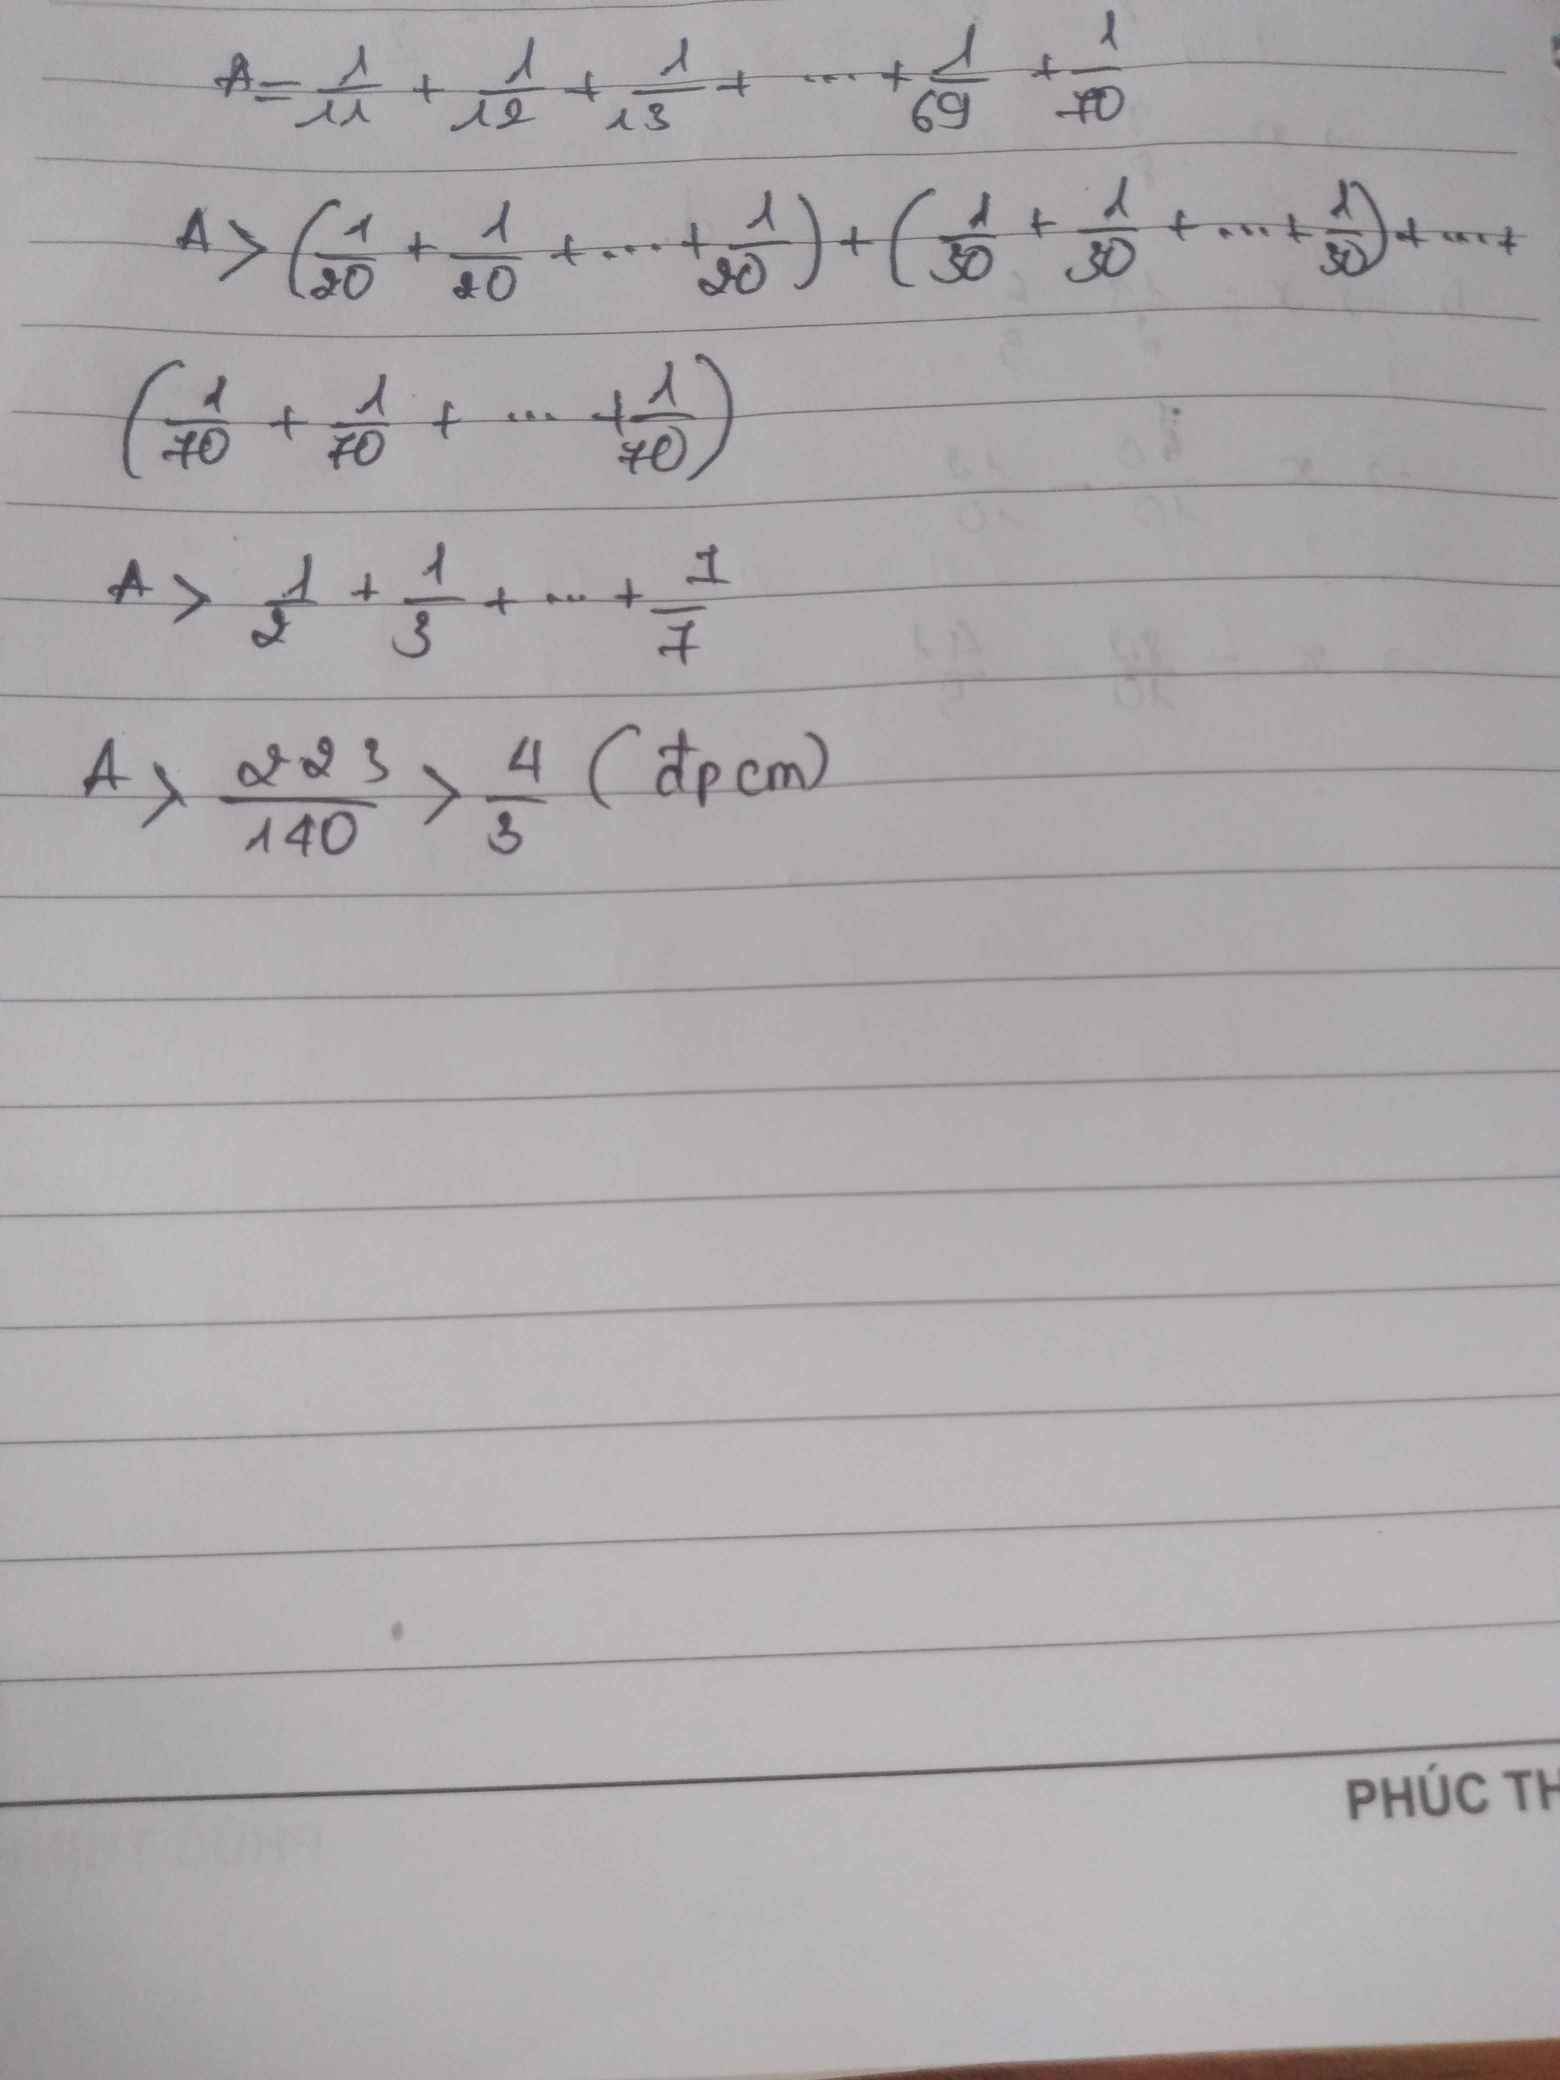 A = 1/11 + 1/12 + 1/13 + ... + 1/69 + 1/70
A > (1/20 + 1/20 + ... + 1/20) + (1/30 + 1/30 + ... + 1/30) + ... +
(1/70 + 1/70 + ... + 1/70)
A > 1/2 + 1/3 + ... + 1/7
A > 223/140 > 4/3 (đpcm)
PHÚC TH